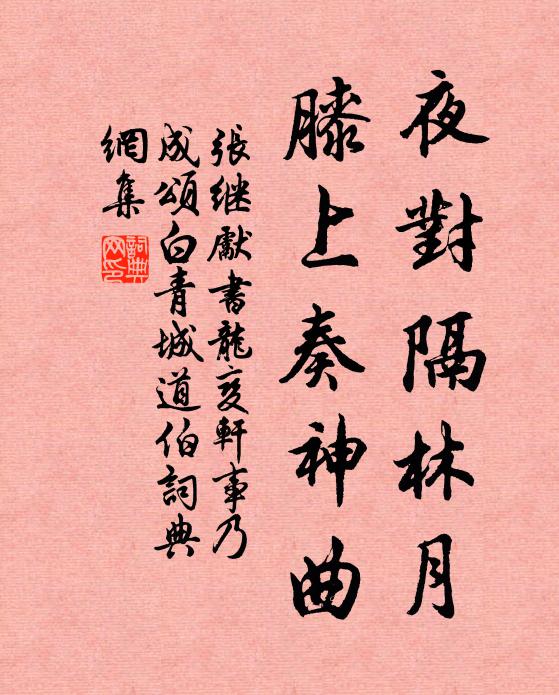 夜對隔林月
膝上奏神曲
張继獻書龍变軒事乃
成頌白青城道伯詞典
網集
詞典
网印